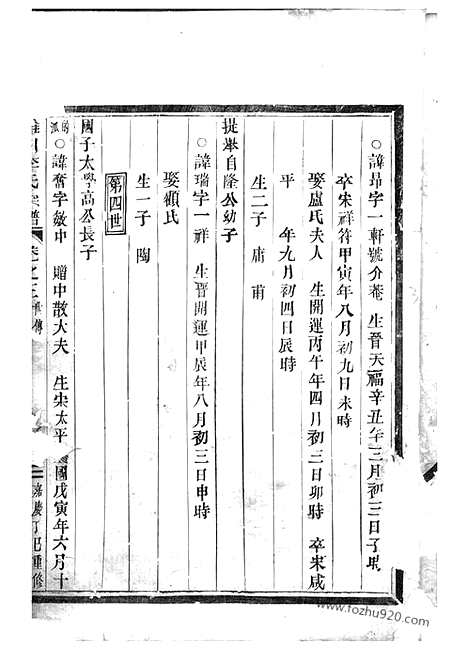 ○諱昻字一軒號介菴 生晉天福辛丑年三月初三日子時
卒宋祥符甲寅年八月初九日未時
娶盧氏夫人 生開運丙午年四月初三日卯時 卒宋咸
平 年九月初四日辰時
生二子 庸 甫
提舉自隆公幼子
○諱瑞字一祥 生晉開運甲辰年八月初三日申時
娶顧氏
生一子 陶
第四世
國子太學高公長子
○諱奮字敏中 贈中散大夫 生宋太平
國戊寅年六月十
氏宗譜 卷之三
嘉慶丁巳重修
www.fozhu920.com